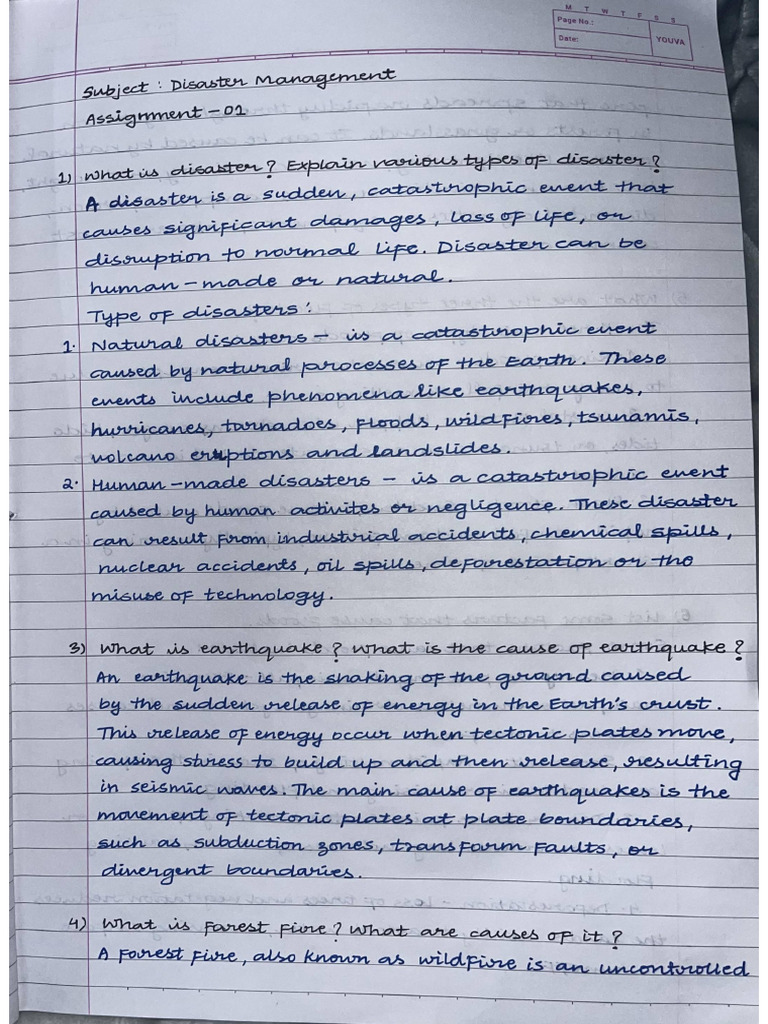 M T W T F S S
Page No.:
Date:
YOUVA
Subject : Disaster Management
Assignment - 01
1) What is disaster? Explain various types of disaster?
A disaster is a sudden, catastrophic event that
causes significant damages, loss of life, or
disruption to normal life. Disaster can be
human-made or natural.
Type of disasters:
1. Natural disasters - is a catastrophic event
caused by natural processes of the Earth. These
events include phenomena like earthquakes,
hurricanes, tornadoes, floods, wildfires, tsunamis,
volcano eruptions and landslides.
2. Human-made disasters - is a catastrophic event
caused by human activites or negligence. These disaster
can result from industrial accidents, chemical spills,
nuclear accidents, oil spills, deforestation or the
misuse of technology.
3) What is earthquake? What is the cause of earthquake?
An earthquake is the shaking of the ground caused
by the sudden release of energy in the Earth's crust.
This release of energy occur when tectonic plates move,
causing stress to build up and then release, resulting
in seismic waves. The main cause of earthquakes is the
movement of tectonic plates at plate boundaries,
such as subduction zones, transform faults, or
divergent boundaries.
4) What is forest fire? What are causes of it?
A forest fire, also known as wildfire is an uncontrolled